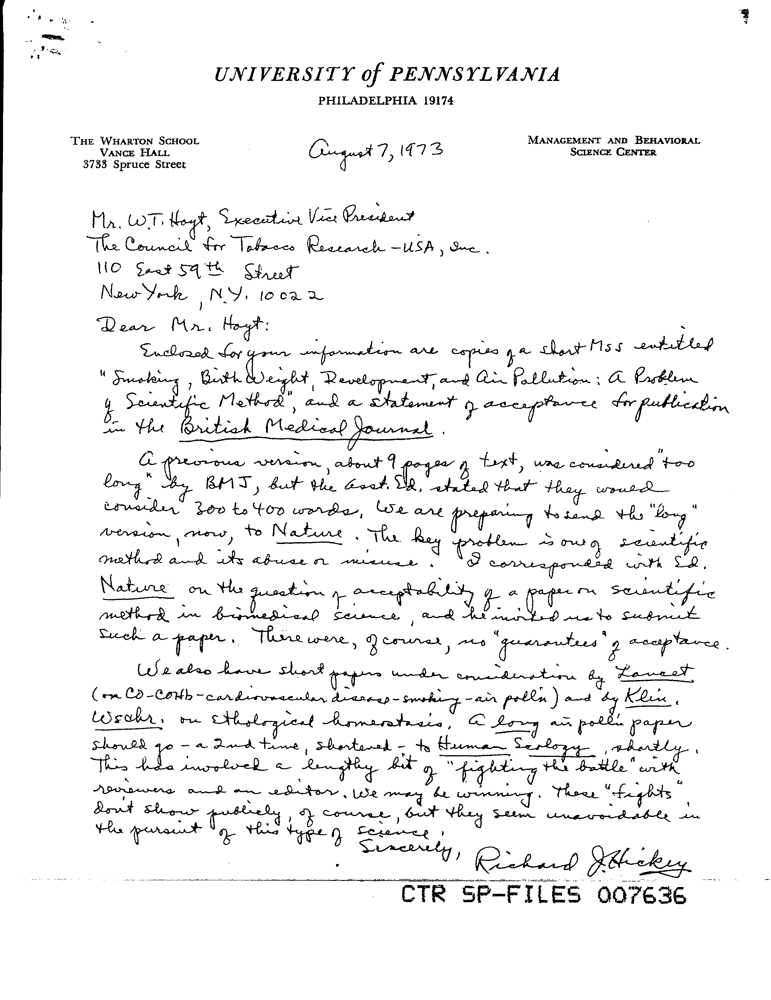 UNIVERSITY of PENNSYLVANIA
PHILADELPHIA 19174
THE WHARTON SCHOOL
VANCE HALL
3733 Spruce Street
August 7, 1973
MANAGEMENT AND BEHAVIORAL
SCIENCE CENTER
Mr. W.T. Hoyt, Executive Vice President
The Council for Tobacco Research-USA, Inc.
110 East 59th Street
New York, N.Y. 10022
Dear Mr. Hoyt:
Enclosed for your information are copies of a short MSS entitled
"Smoking, Birth Weight, Development, and Air Pollution: A Problem
of Scientific Method", and a statement of acceptance for publication
in the British Medical Journal.
A previous version, about 9 pages of text, was considered "too
long" by BMJ, but the Asst. Ed. stated that they would
consider 300 to 400 words. We are preparing to send the "long"
version, now, to Nature. The key problem is one of scientific
method and its abuse or misuse. I corresponded with Ed.
Nature on the question of acceptability of a paper on scientific
method in biomedical science, and he invited us to submit
such a paper. There were, of course, no "guarantees" of acceptance.
We also have short papers under consideration by Lancet
(on CO-COHb-cardiovascular disease-smoking-air poll'n) and by Klin.
Wschr. on ethological homeostasis. A long air poll'n paper
should go - a 2nd time, shortened - to Human Ecology, shortly.
This has involved a lengthy bit of "fighting the battle" with
reviewers and an editor. We may be winning. These "fights"
don't show publicly, of course, but they seem unavoidable in
the pursuit of this type of science.
Sincerely,
Richard J. Hickey
CTR SP-FILES 007636